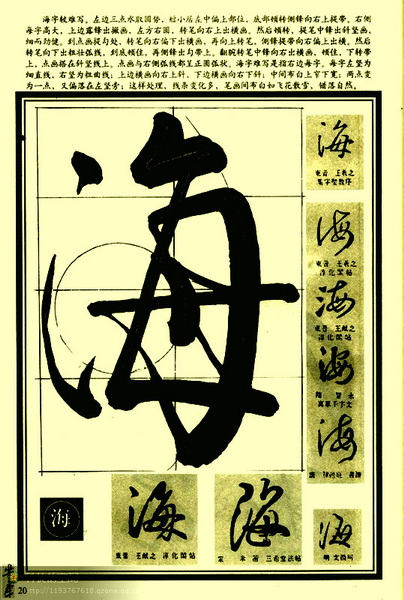 海字较难写。左边三点水取圆势，短小居左中偏上部位，底部顿转侧锋向右上提带。右侧
每字高大，上边露锋出撇画，左方右圆，转笔向右上出横画。然后顿转，提笔中锋出斜竖画，
转笔向右偏下出横画，再向上转笔，侧锋提带向右偏上出横。然后
转笔向右下出粗壮弧线，到底顿住，再侧锋出勾带上，翻腕转笔中锋向右出横画，顿住，下转带
上，点画搭在斜竖线上。点画与右侧弧线都呈正圆弧状。海字难写是指右边每字。每字左竖为
细直线，右竖为粗曲线；上边横画向右上斜，下边横画向右下斜；中间布白上窄下宽；两点变
为一点，又偏落在左竖旁；这样处理，线条变化多，笔画间布白如飞花散雪，错落自然。
海
海
东晋 王羲之
集字圣教序
海
东晋 王羲之
淳化阁帖
海
东晋 王献之
淳化阁帖
海
隋 智永
真草千字文
海
海
海
东晋 王献之 淳化阁帖
海
宋 米芾 三希堂法帖
海
明 文徵明
20
http://1193767618.qzone.qq.com